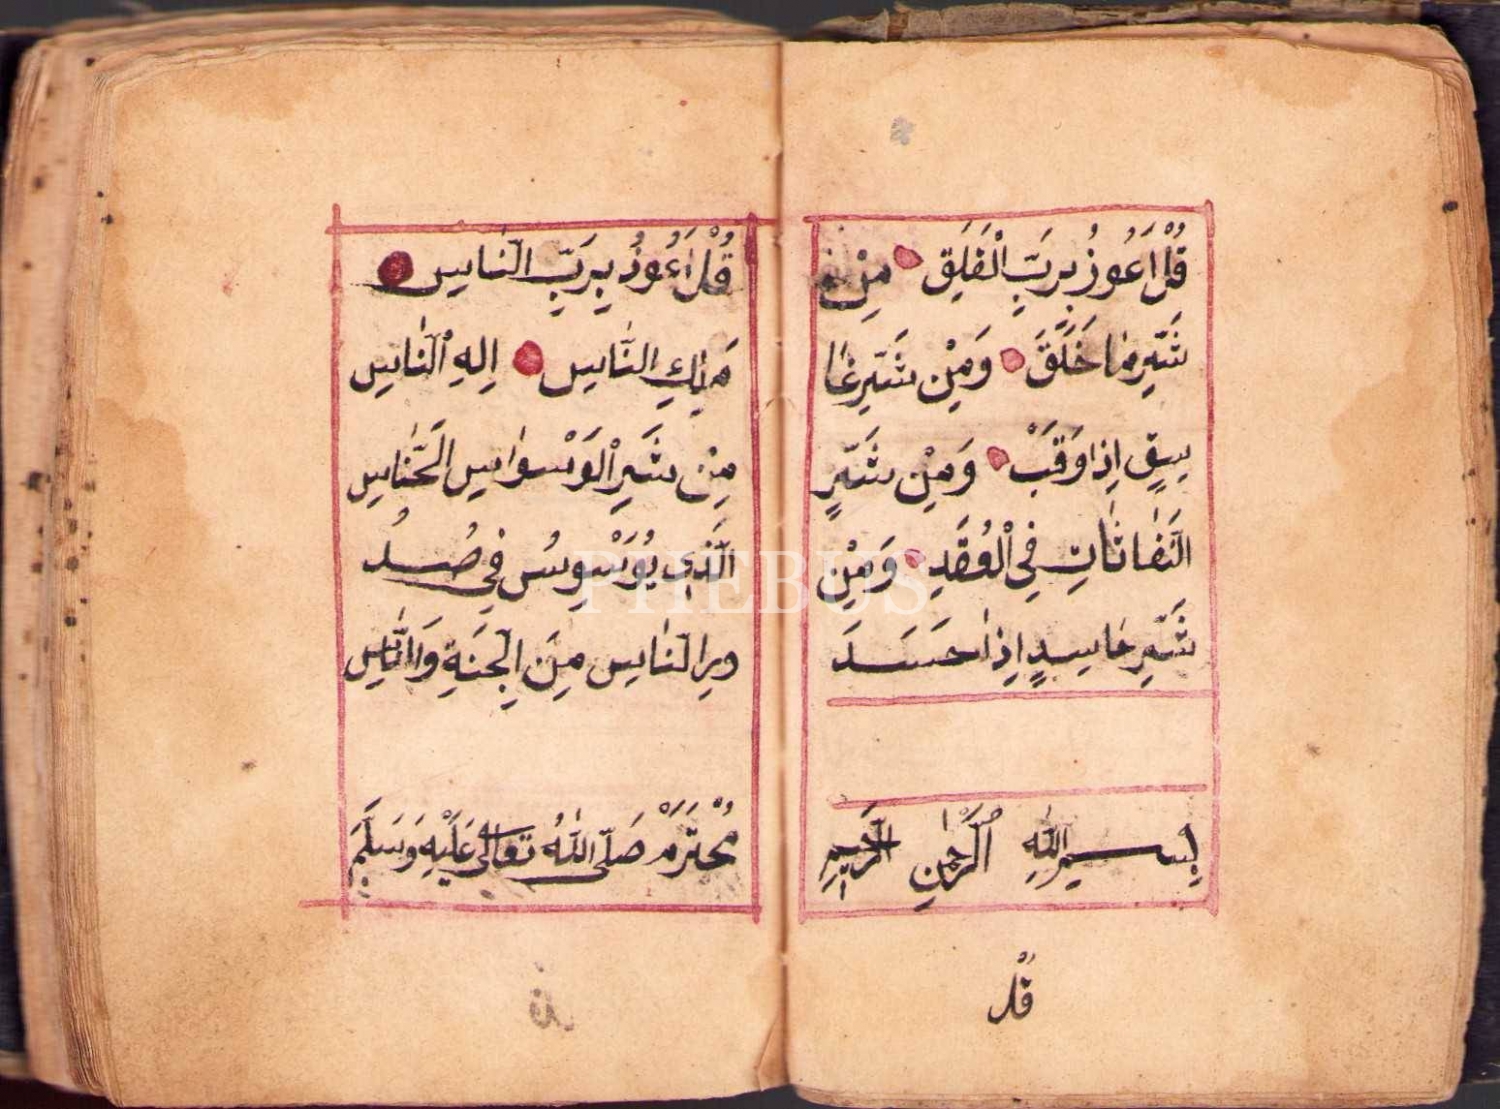 قُلْ اَعُوذُ بِرَبِّ الْفَلَقِ مِنْ
شَرِّ مَا خَلَقَ وَمِنْ شَرِّ غَا
سِقٍ اِذَا وَقَبَ وَمِنْ شَرِّ
النَّفَاثَاتِ فِي الْعُقَدِ وَمِنْ
شَرِّ حَاسِدٍ اِذَا حَسَدَ
بِسْمِ اللّٰهِ الرَّحْمٰنِ الرَّحِيمِ
قُلْ
قُلْ اَعُوذُ بِرَبِّ النَّاسِ
مَلِكِ النَّاسِ اِلٰهِ النَّاسِ
مِنْ شَرِّ الْوَسْوَاسِ الْخَنَّاسِ
الَّذِي يُوَسْوِسُ فِي صُدُ
ورِ النَّاسِ مِنَ الْجِنَّةِ وَالنَّاسِ
مُحْتَرَمْ صَلَّى اللّٰهُ تَعَالَى عَلَيْهِ وَسَلَّمَ
PHEBUS